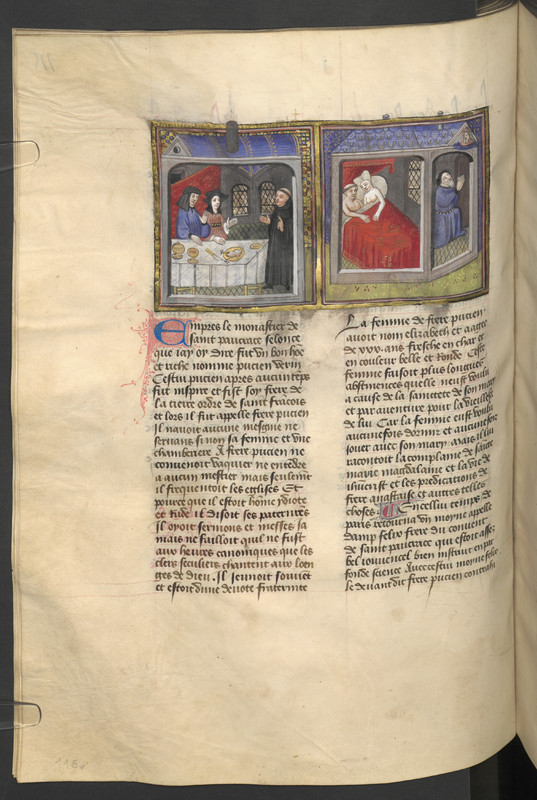 Empres le monastier de
saint pancrace selonce
que iay oy dire fut vn bon hoe
et riche nomme pucien
Cestui pucien apres aucun teps
fut inspire et fist soy frere de
la tierce ordre de saint fracois
et lors il fut appelle frere pucien
Il nauoit aucune mesgnie ne
seruans sinon sa femme et vne
chamberiere A frere pucien ne
conuenoit vaquer ne entedre
a aucun mestier mais seulemt
il frequentoit les eglises Et
pource que il estoit home ydiote
et rude il disoit ses patenres
Il oyoit sermons et messes ja
mais ne failloit quil ne fust
aux heures canoniques que les
clers seculiers chantent aux loen
ges de dieu . Il jeunoit souuet
et estoit dune deuote fraternite
La femme de frere pucien
auoit nom elizabeth et aagee
de xxx. ans fresche en char et
en couleur belle et ronde Ceste
femme faisoit plus longues
abstinences quelle neust voulu
a cause de la sainctete de son mary
et par auenture pour la vieillesse
de lui Car la femme eust voulu
aucunefois dormir et aucunefois
jouer auec son mary mais il lui
racontoit la complainte de saicte
marie magdalaine et la vie de
ihucrist et les predicacions de
frere anastaise et autres telles
choses . En cellui temps de
paris retourna vn moyne appelle
damp felix frere du conuent
de saint pancrace qui estoit assez
bel iouuencel bien instruit en par
fonde science Auec cestui moyne felix
le deuant dit frere pucien contrahi